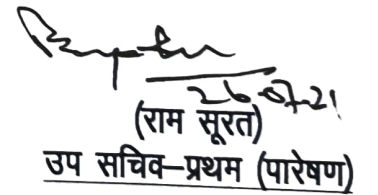 26-07-21
(राम सूरत)
उप सचिव–प्रथम (पारेषण)